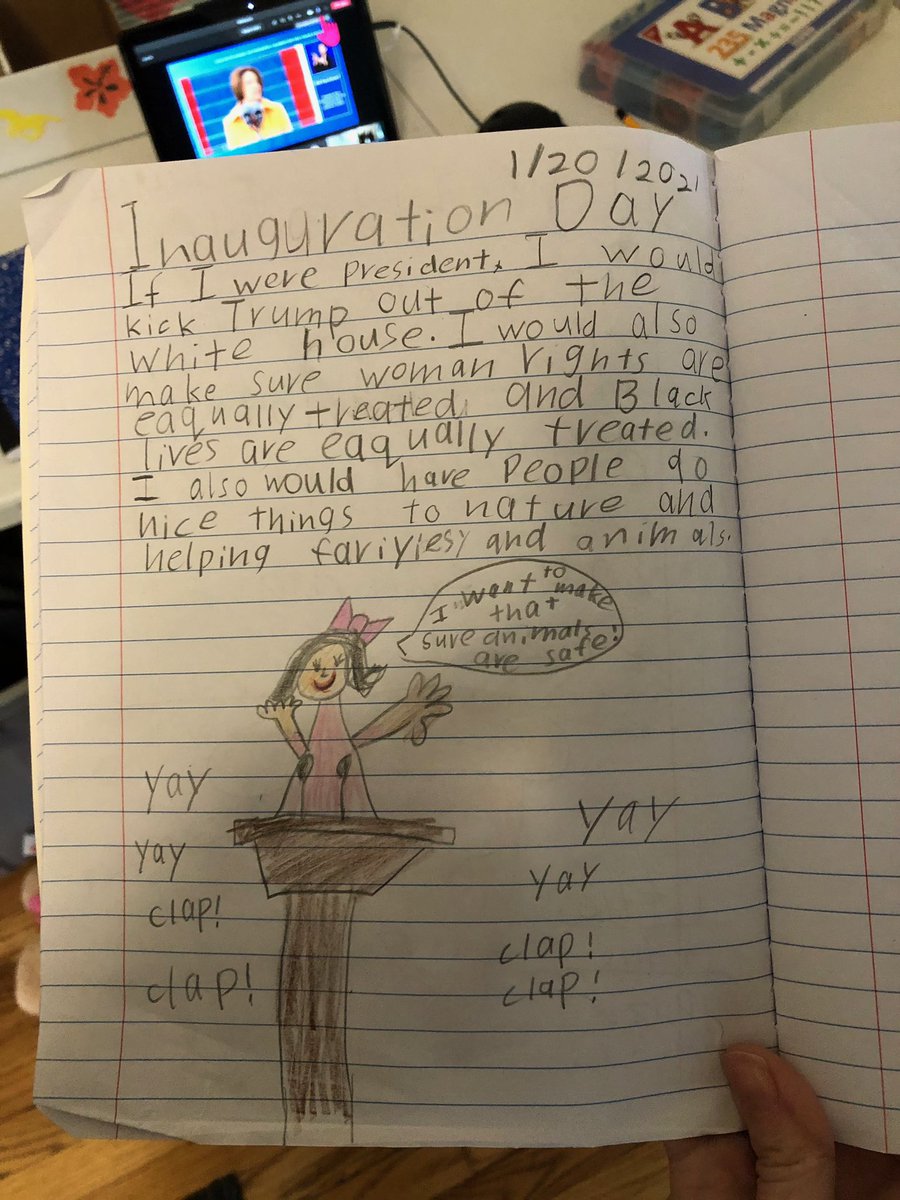 "A B
235 Magn
1/20/2021
Inauguration Day
If I were president, I would
kick Trump out of the
white house. I would also
make sure woman rights are
eaqually treated and Black
lives are eaqually treated.
I also would have people do
nice things to nature and
helping and animals.
I want to make
that
sure animals
are safe!
yay
yay
yay
yay
clap!
clap!
clap!
clap!